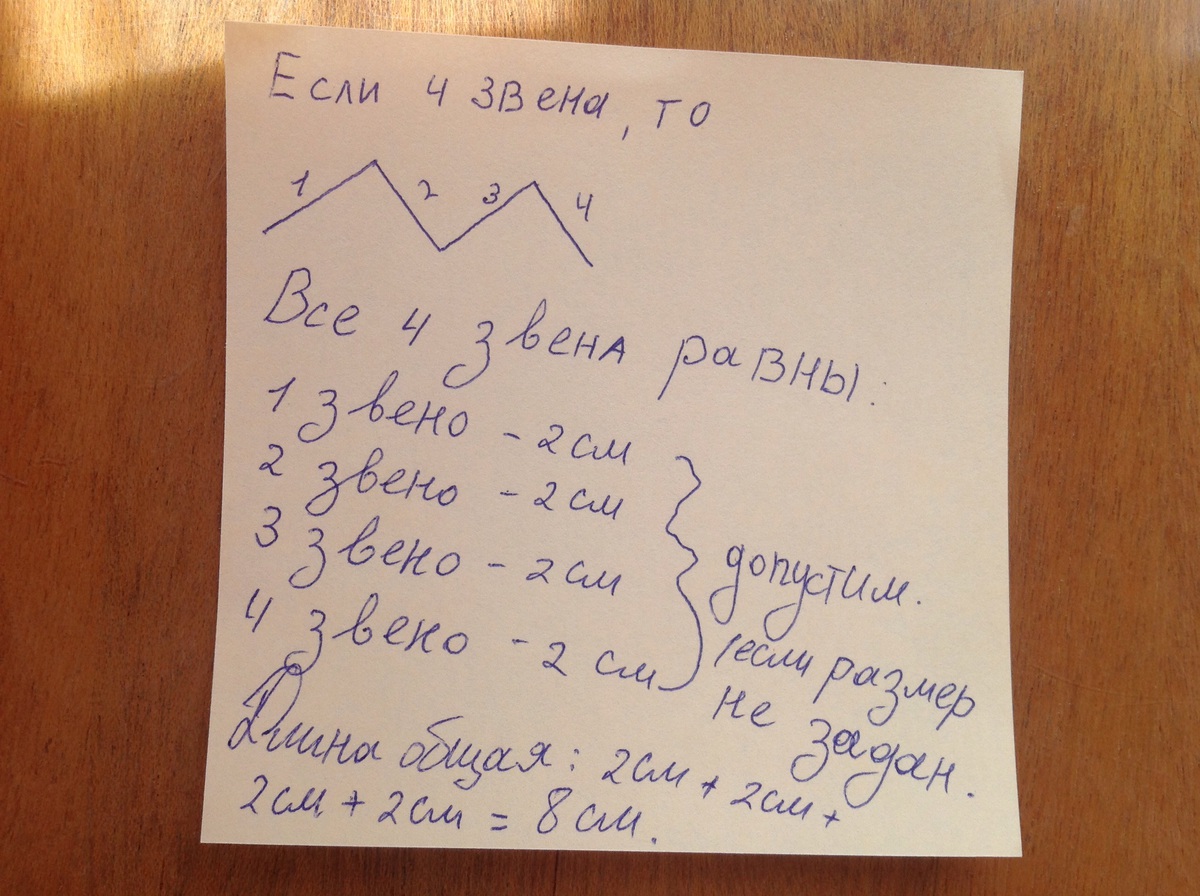 Если 4 звена, то
1 2 3 4
Все 4 звена равны:
1 звено - 2 см
2 звено - 2 см
3 звено - 2 см
4 звено - 2 см
допустим.
(если размер
не задан.
Длина общая: 2см + 2см +
2см + 2см = 8 см.